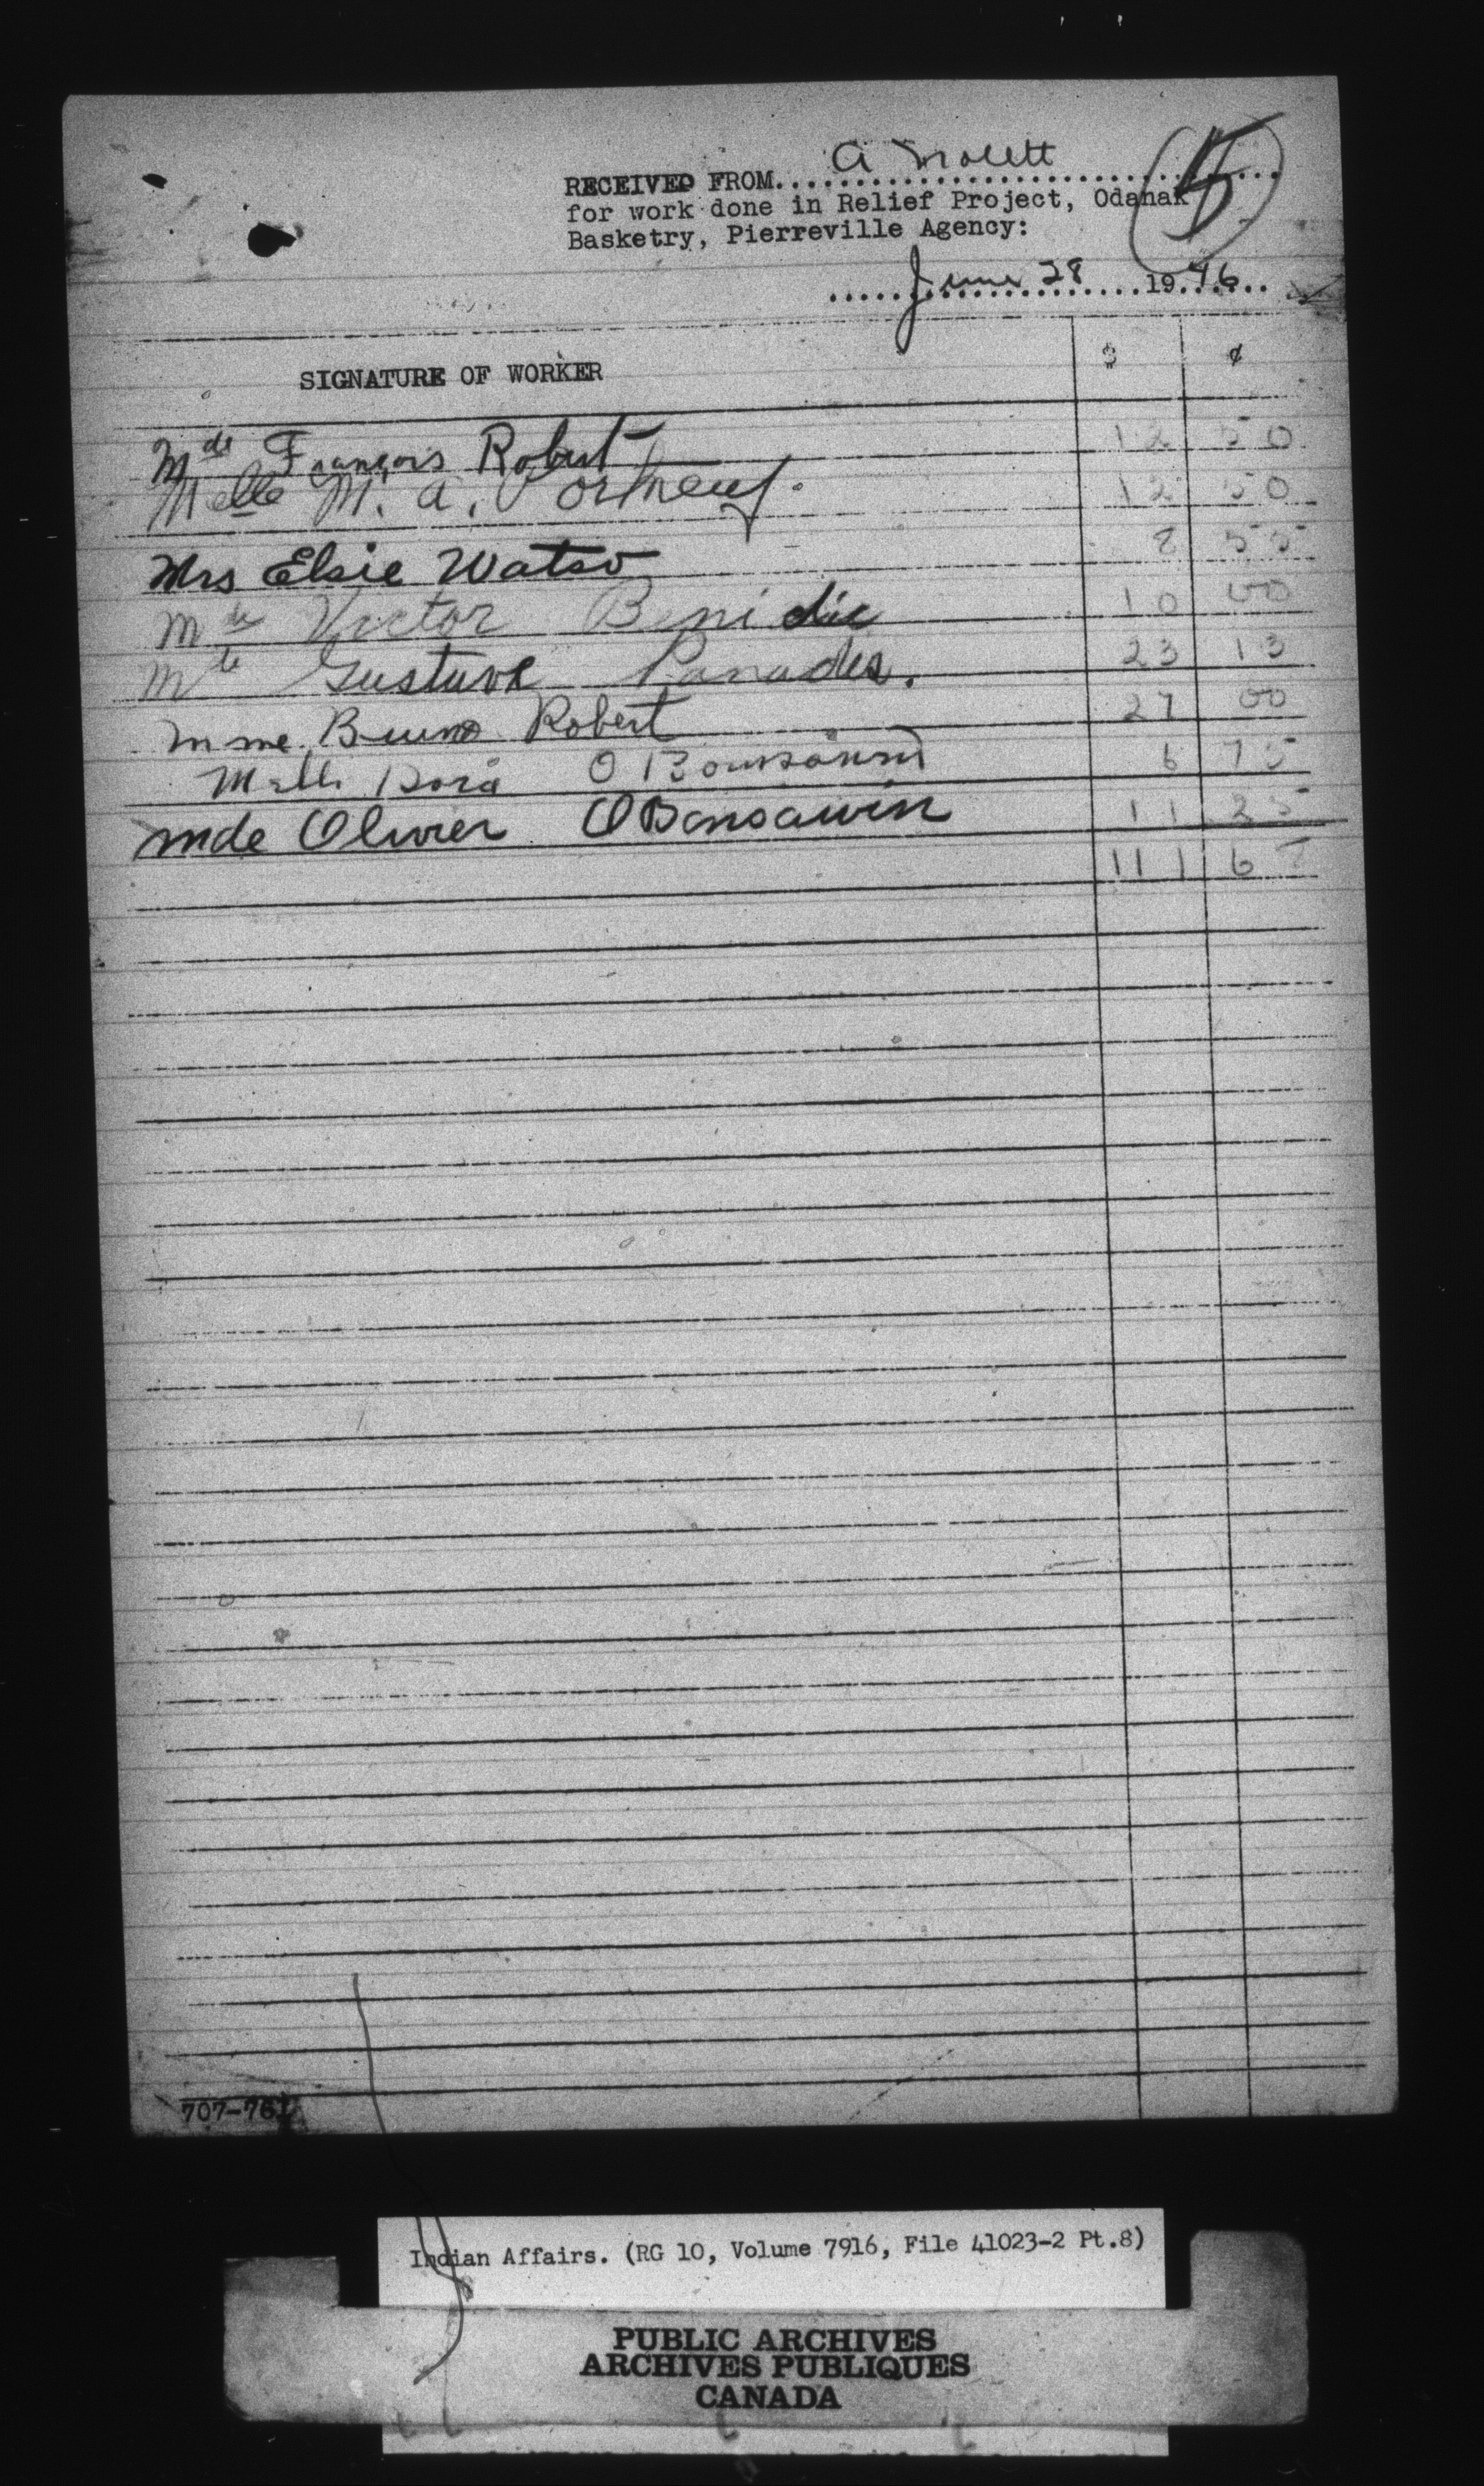 A Nolett
RECEIVED FROM
5
for work done in Relief Project, Odanak
Basketry, Pierreville Agency:
June 28 1946
SIGNATURE OF WORKER $ ¢
Mde François Robert 12 50
Melle M. A. Portneuf. 12 50
Mrs Elsie Watso 8 55
Mde Victor Benidic 10 00
Mde Gustave Panadis. 23 13
Mme. Bruno Robert 27 00
Melle Dora O Bomsawin 6 75
Mde Olivier OBonsawin 11 25
111 68
707-761
Indian Affairs. (RG 10, Volume 7916, File 41023-2 Pt.8)
PUBLIC ARCHIVES
ARCHIVES PUBLIQUES
CANADA